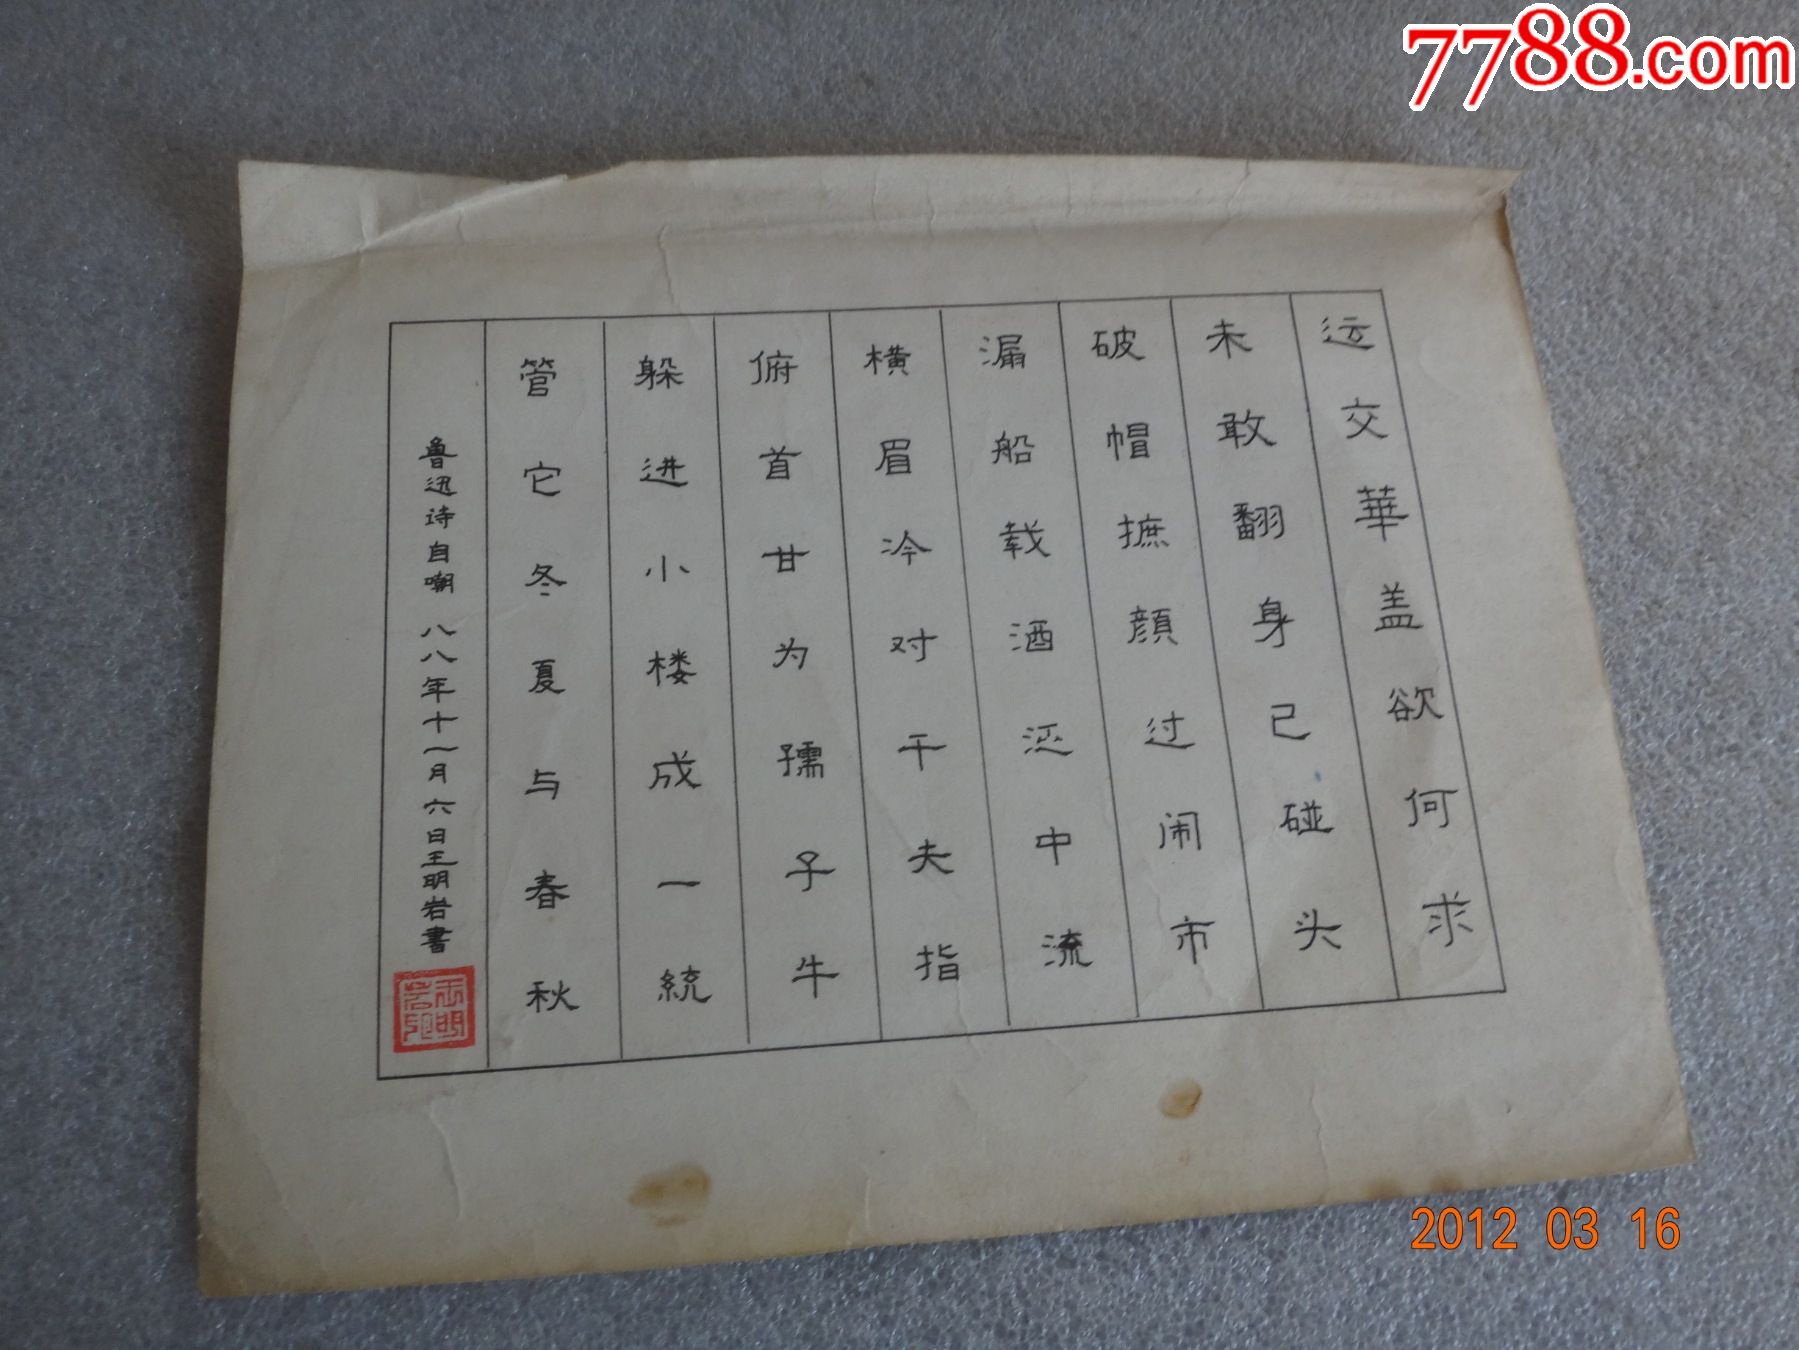 7788.com
运交華盖欲何求
未敢翻身已碰头
破帽摭颜过闹市
漏船载酒泛中流
横眉冷对千夫指
俯首甘为孺子牛
躲进小楼成一統
管它冬夏与春秋
鲁迅诗自嘲 八八年十一月六日王明岩書
2012 03 16